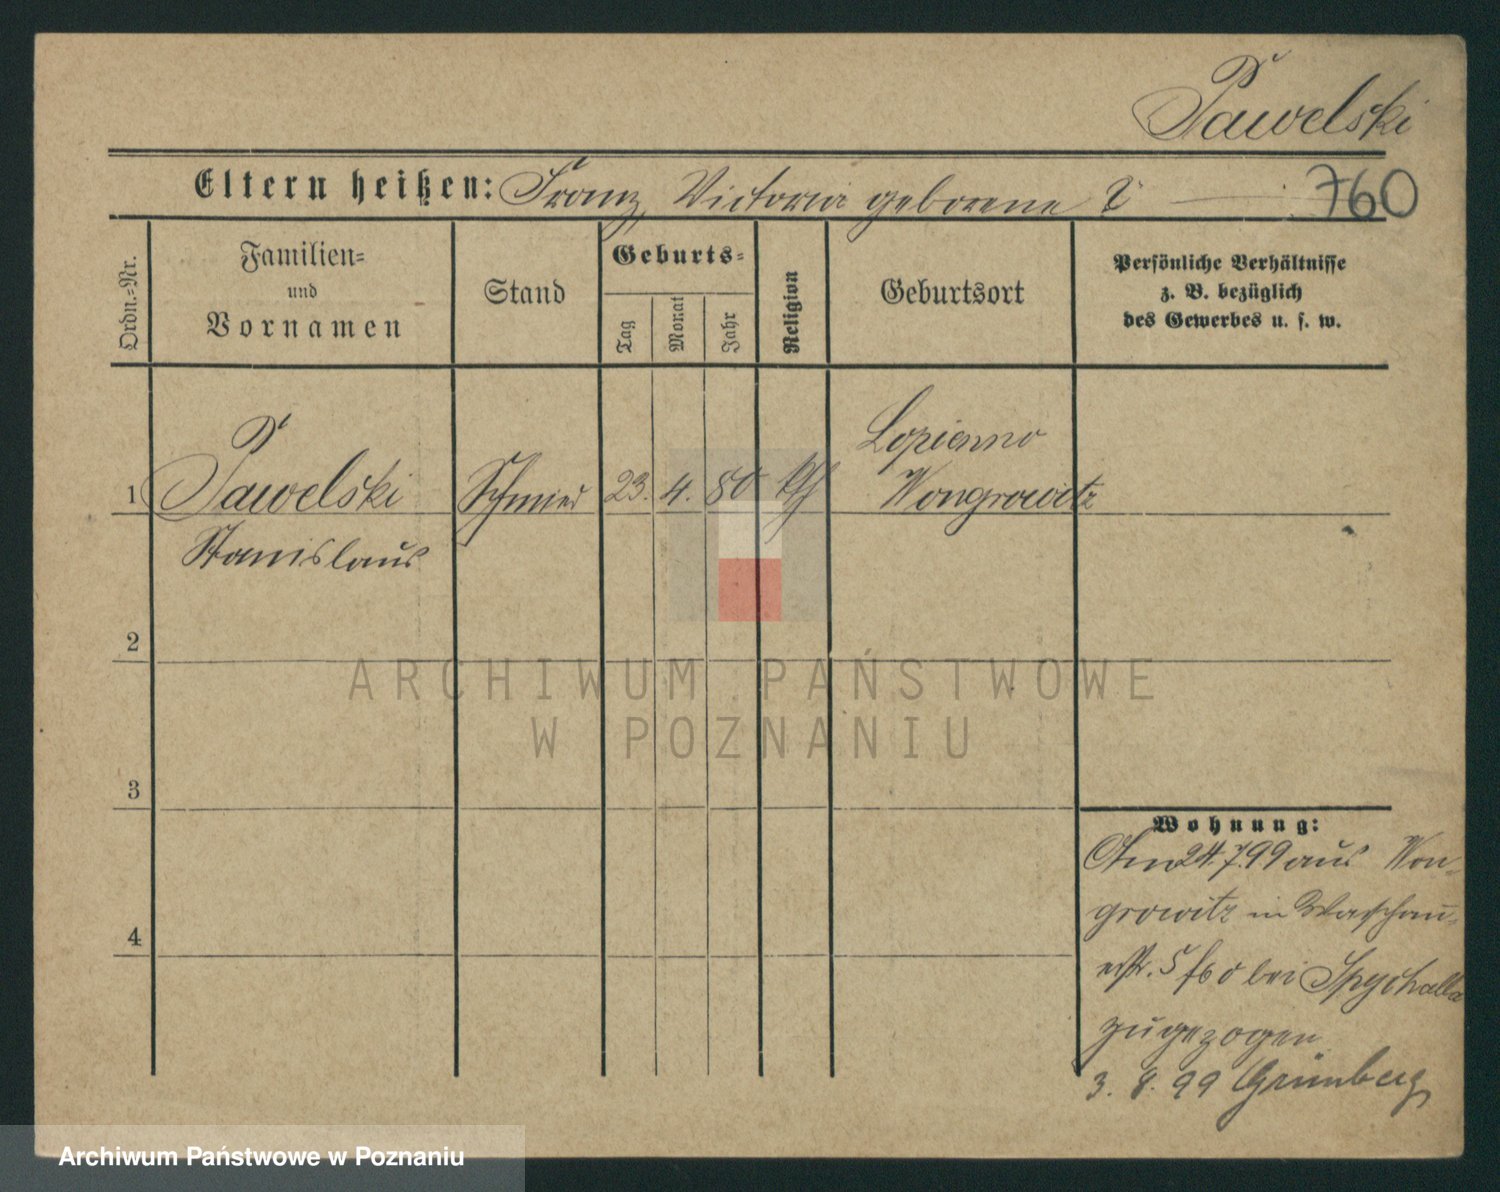 Pawelski
Eltern heißen: Franz, Victoria geborene ?
760
Ordn.=Nr.
Familien=
und
Vornamen
Stand
Geburts=
Tag
Monat
Jahr
Religion
Geburtsort
Persönliche Verhältnisse
z. B. bezüglich
des Gewerbes u. s. w.
1 Pawelski Schmied 23. 4. 80 kth Lopienno
Wongrowitz
Stanislaus
2
3
4
ARCHIWUM PAŃSTWOWE
W POZNANIU
Wohnung:
Am 24.7.99 aus Won-
growitz in Warschau-
erstr. 5 bei Spychalla
zugezogen
3. 8. 99 Grünberg
Archiwum Państwowe w Poznaniu